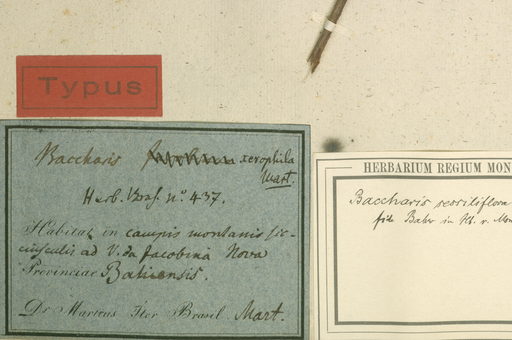 Typus
Baccharis xerophila
Mart.
Herb. Bras. nº 437.
Habitat in campis montanis sic-
ciusculis ad V. da Jacobina Nova
Provinciae Bahiensis.
Dr Martius Iter Brasil. Mart.
HERBARIUM REGIUM MON
Baccharis sessiliflora
fide Baker in